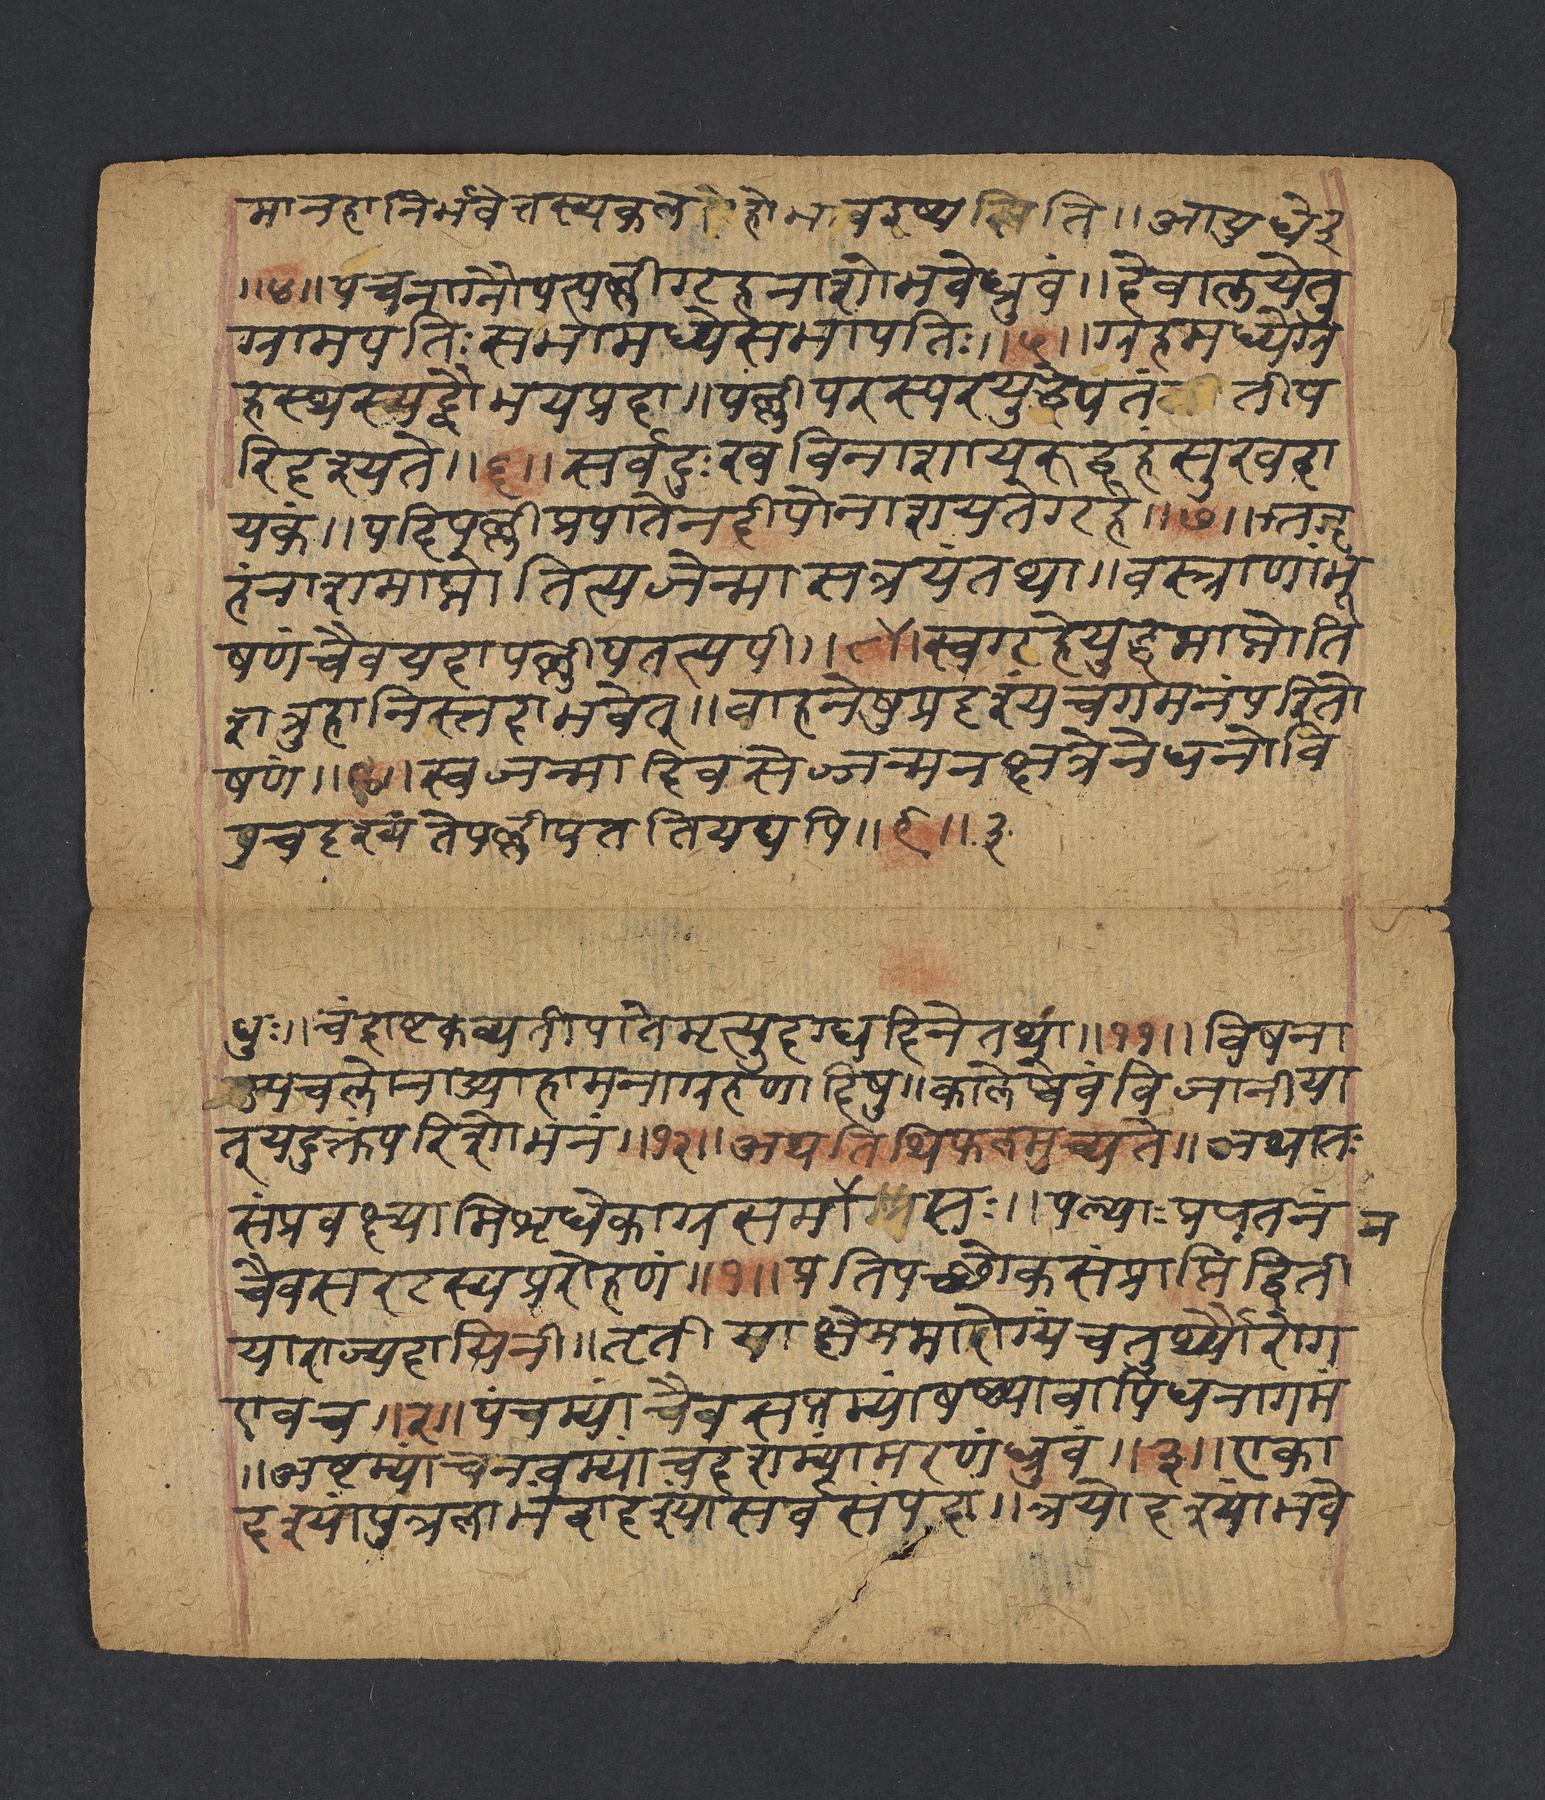 मानहानिर्भवेत्तस्यकल होभावइष्य ति॥आयुधे३
॥४॥पचनाग्नौपत्पल्लीगृहनाशोभवेध्रुवं॥देवालयेतु
ग्रामपतिःसभामध्येसभापतिः॥५॥ग्रहमध्येग्र
हस्थस्यद्वौभयप्रदा॥पल्लीपरस्परयुद्धेपतं तीप
रिदृश्यते॥६॥सर्वदुःखविनाशाय सुखदा
यकं॥पदिपल्लीप्रपातेनदीपोनाशयतेगृहं॥७॥तद्गृ
हंनाशमाप्नोतित्यजेन्मासत्रयंतथा॥वस्त्राणांभू
षणंचैवयदापल्लीपतत्यपी॥८॥स्वगृहेयुद्धमाप्नोति
शत्रुहानिस्तदाभवेत्॥वाहनेषुप्रदृश्यंचगमनंपरितो
षणं॥ ॥स्वजन्मादिवसेज्जन्मनक्षत्रेनैधनोवि
दृश्यंतेपल्लीपततियद्यपि॥९॥३
धुः॥चंद्राष्टकव्यतीपातेमृत्युदग्धदिनेतथा॥११॥विषना
पचलोनाड्या ग्रहणादिषु॥कालेष्वेवंविजानीया
त्यदुक्तंपरिशोभनं॥१२॥अथतिथिफलमुच्यते॥अथातः
संप्रवक्ष्यामिशृणुधैकाग्रसमा सः॥पल्याःप्रपतनं न
चैवसरटस्यप्ररोहणं॥१॥प्रतिपच्छोकसंप्राप्तिद्विती
याराज्यदायिनी॥तृतीयाक्षेममारोग्यंचतुर्थ्यौरोग
एवच॥२॥पंचम्यांचैवसप्तम्यांषष्ठ्यावापिधनागमं
॥अष्टम्यांचनवम्यांचदशम्यांमरणंध्रुवं॥३॥एका
दश्यांपुत्रलाभंद्वादश्यांसर्वसंपदा॥त्रयोदश्यांभवे